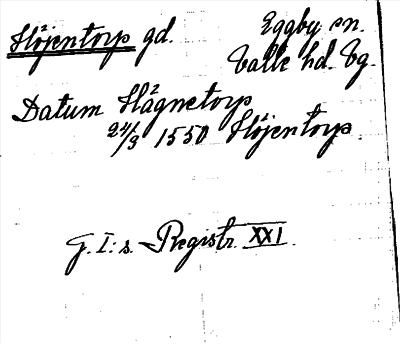 Höjentorp gd. Eggby sn.
Valle hd. Vg.
Datum Hägnetorp
24/3 1550 Höjentorp.
G. I:s. Registr. XXI.